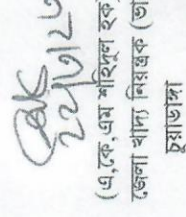 ২২/৩/২৩
(এ,কে,এম শহিদুল হক)
জেলা খাদ্য নিয়ন্ত্রক (ভা
চুয়াডাঙ্গা